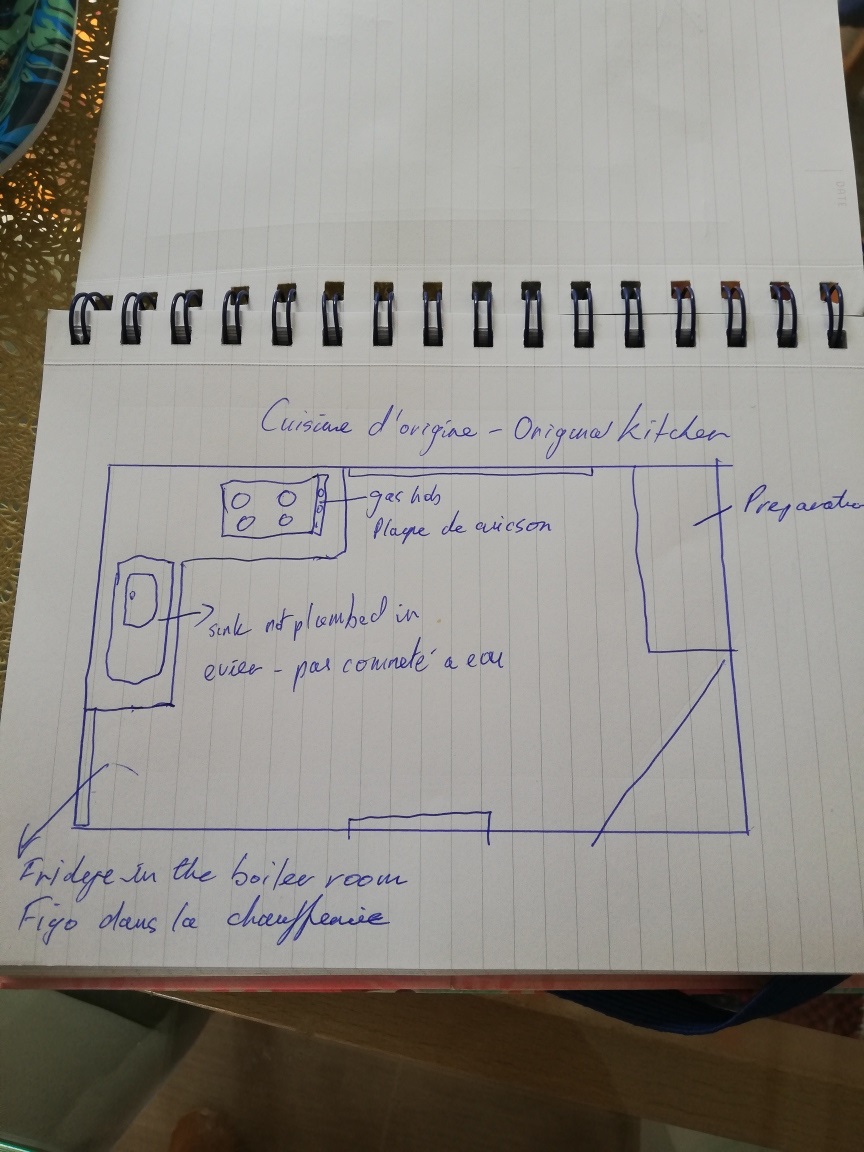 Cuisine d'origine - Original kitchen
gas hob
Plaque de cuicson
Preparation
sink not plumbed in
evier - pas connecté a eau
Fridge in the boiler room
Figo dans la chaufferie
DATE